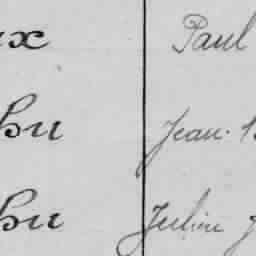 ux Paul
hu Jean
hu Julien